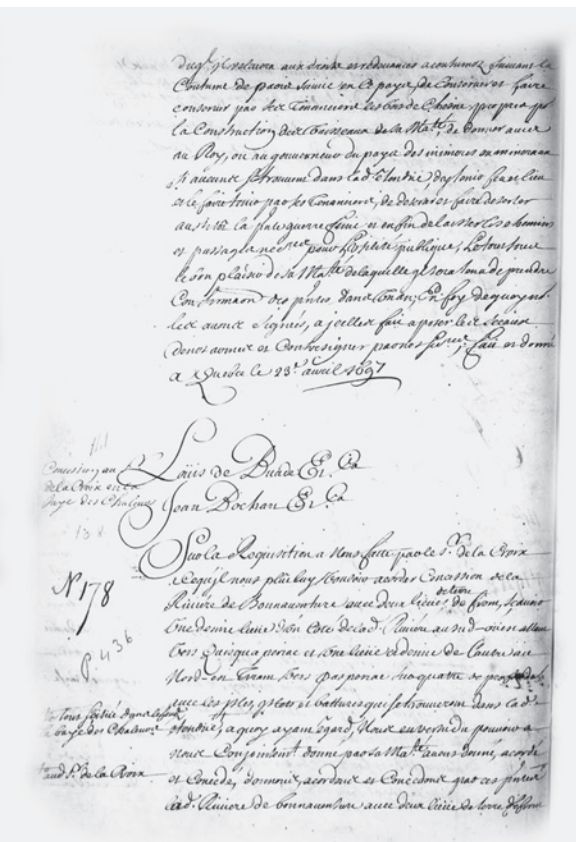 aux droits et redevances accoutumez suivant la
Coutume de paris suivie en ce pays, de Conserver et faire
conserver par ses Tenanciers les bois de Chesne propres pour
la Construction des vaisseaux de sa Ma.té, de donner avis
au Roy, ou au gouverneur du pays des mines ou mineraux
si aucuns se trouvent dans lad. Etendue, d'y tenir feu et lieu
et le faire tenir par ses Tenanciers, de deserter et faire deserter
la p.nte guerre finie et enfin de laisser les chemins
et passages necess.res pour l'utilité publique, Le tout sous
le bon plaisir de sa Ma.té de laquelle il sera tenu de prendre
Confirmation des p.ntes dans l'an; En foy dequoy nous
les avons signées, a jcelles fait aposer le Sceau
de nos armes et Contresigner par nos Secr.res; Fait et donné
a Quebec le 23.e avril 1697
Concession au S.r
de la Croix en la
baye des Chaleurs
Loüis de Buade Et.c Ca
Jean Bochart Et.c Ca
N.o 178
p. 436
Sur la Requisition a Nous faite par le S.r de la Croix
a ce qu'jl nous plût luy vouloir acorder Concession de la
Riviere de Bonnaventure avec deux lieües de terre de front, sçavoir
Une demie lieüe d'un Coté de lad. Riviere au sud-oüest allant
vers et une lieüe et demie de l'autre au
Nord-est Tirant vers paspebiac sur quatre de profondeur
avec les jsles, jslets et battures qui se trouveront dans lad.
etendüe, a quoy ayant egard, Nous en vertu du pouvoir a
Nous Conjointem.t donné par sa Ma.té avons donné, acordé
et Concedé, donnons, acordons et Concedons par ces p.ntes
lad. Riviere de bonnaventure avec deux lieües de terre
baye des Chaleurs
aud. S.r de la Croix